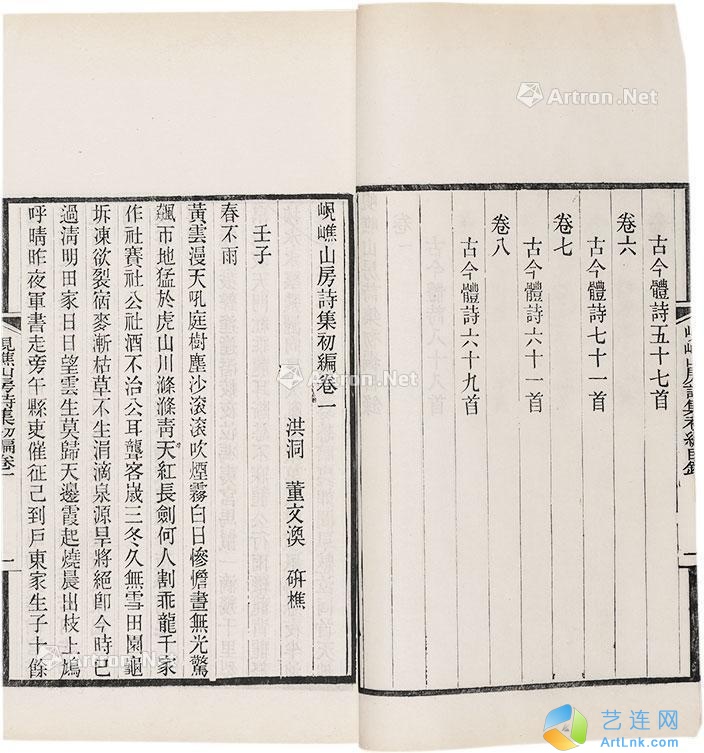 古今體詩五十七首
卷六
古今體詩七十一首
卷七
古今體詩六十一首
卷八
古今體詩六十九首
峴嶕山房詩集初編目錄
一
峴嶕山房詩集初編卷一
洪洞 董文渙 硏樵
壬子
春不雨
黃雲漫天吼庭樹塵沙滚滚吹煙霧白日慘憺晝無光驚
飆帀地猛於虎山川滌滌靑天紅長劍何人割乖龍千家
作社賽社公社酒不治公耳聾客嵗三冬久無雪田園龜
坼凍欲裂宿麥漸枯草不生涓滴泉源旱將絕卽今時已
過淸明田家日日望雲生莫歸天邊霞起燒晨出枝上鳩
呼晴昨夜軍書走旁午縣吏催征已到戸東家生子十餘
峴嶕山房詩集初編卷一
一
Artron.Net
Artron.Net
Artron.Net
Artron.Net
艺连网
ArtLnk.com